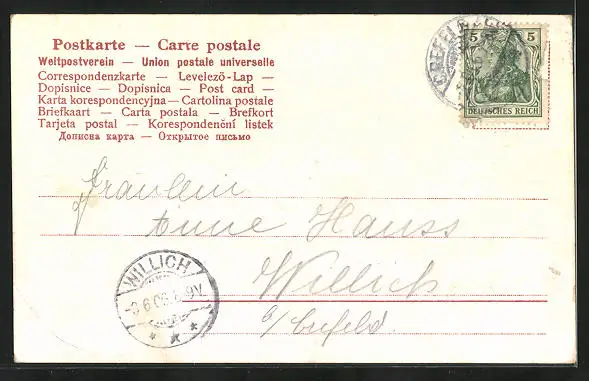 Postkarte — Carte postale
Weltpostverein — Union postale universelle
Correspondenzkarte — Levelező-Lap —
Dopisnice — Dopisnica — Post card —
Karta korespondencyjna — Cartolina postale
Briefkaart — Carta postala — Brefkort
Tarjeta postal — Korespondenční listek
Дописна карта — Открытое письмо
5 5
DEUTSCHES REICH
Fräulein
Anne Hauss
Willich
b/Crefeld.
WILLICH